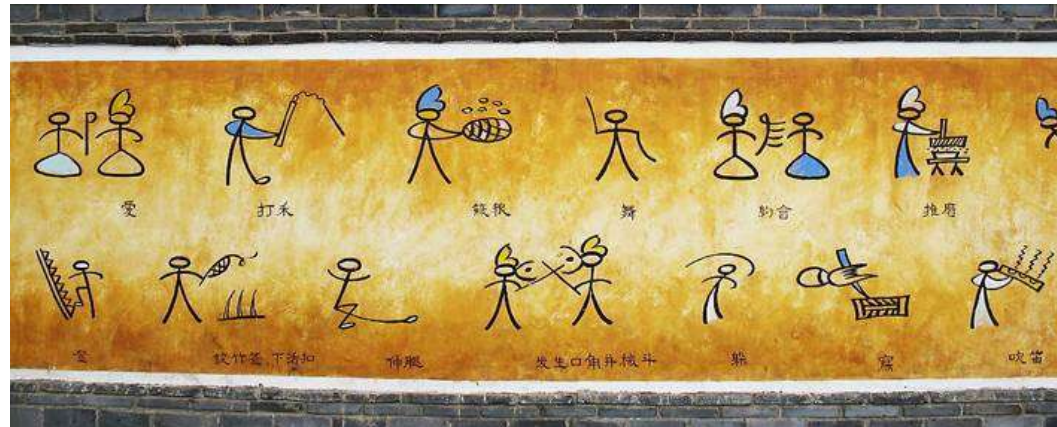 愛
打禾
簸粮
舞
約会
推磨
登
饮竹签、下活扣
伸腿
发生口角斗械斗
躲
吹笛